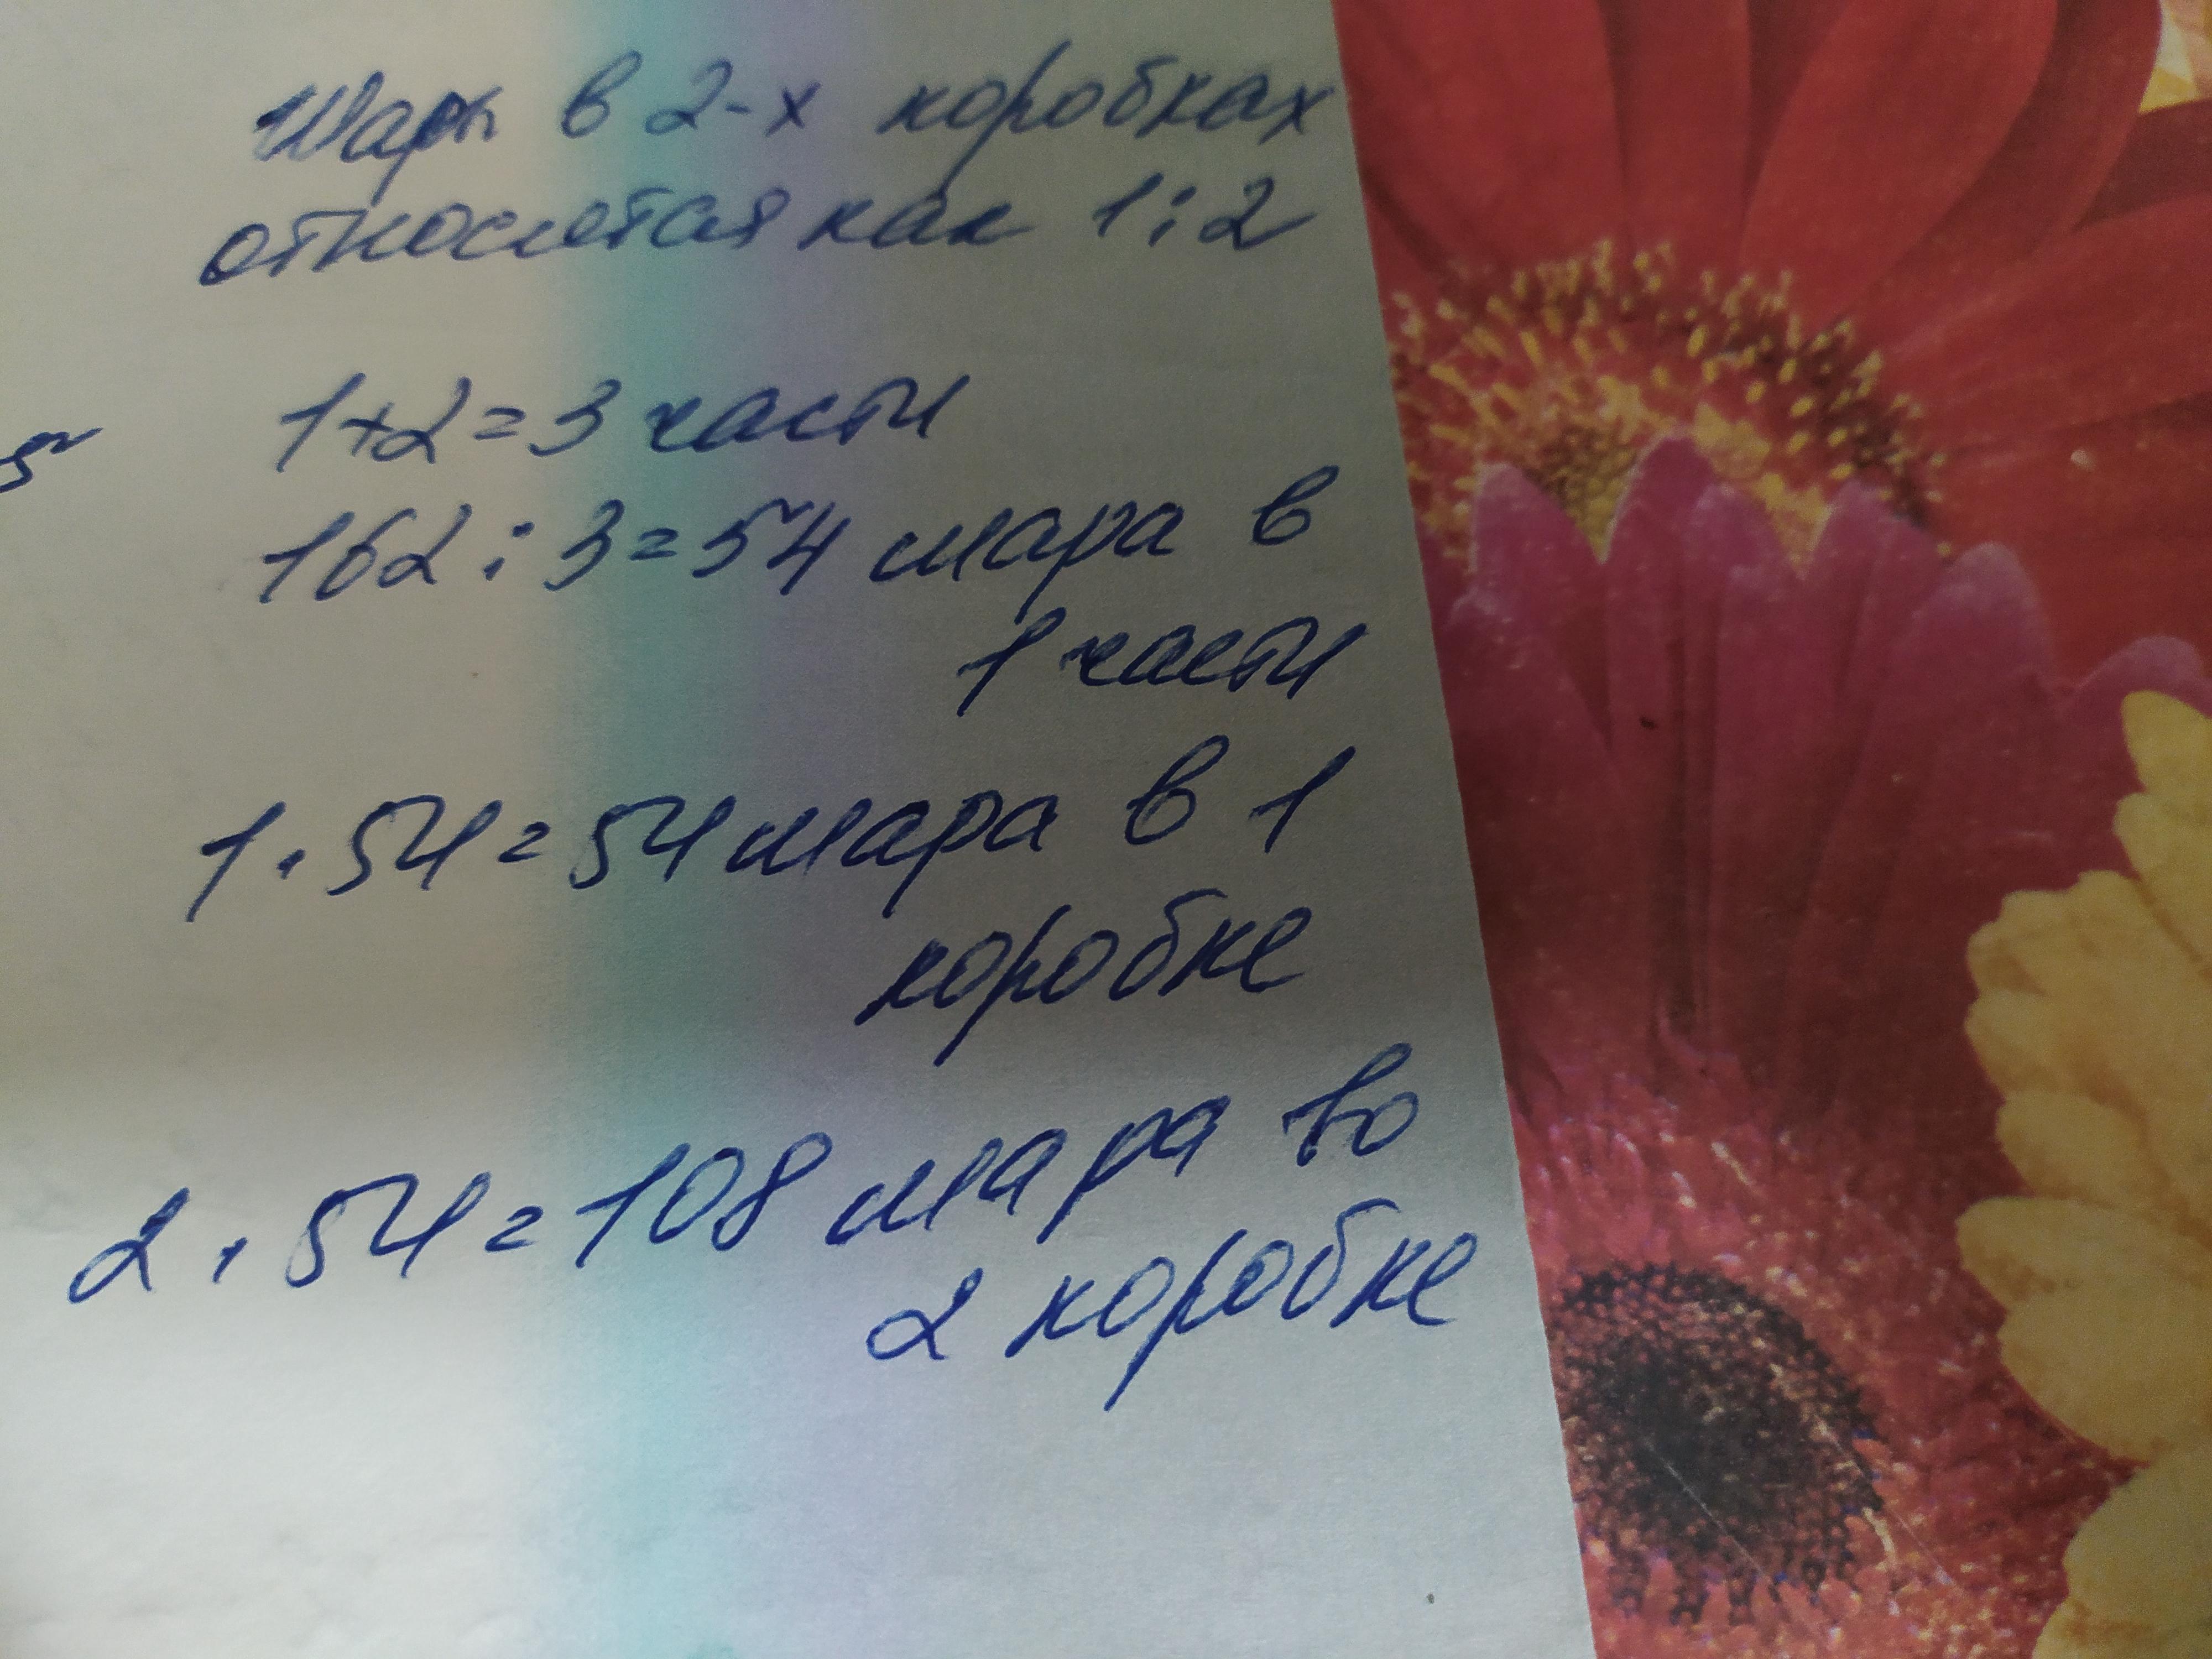 Шары в 2-х коробках
относятся как 1:2
1+2=3 части
162:3=54 шара в
1 части
1·54=54 шара в 1
коробке
2·54=108 шара во
2 коробке